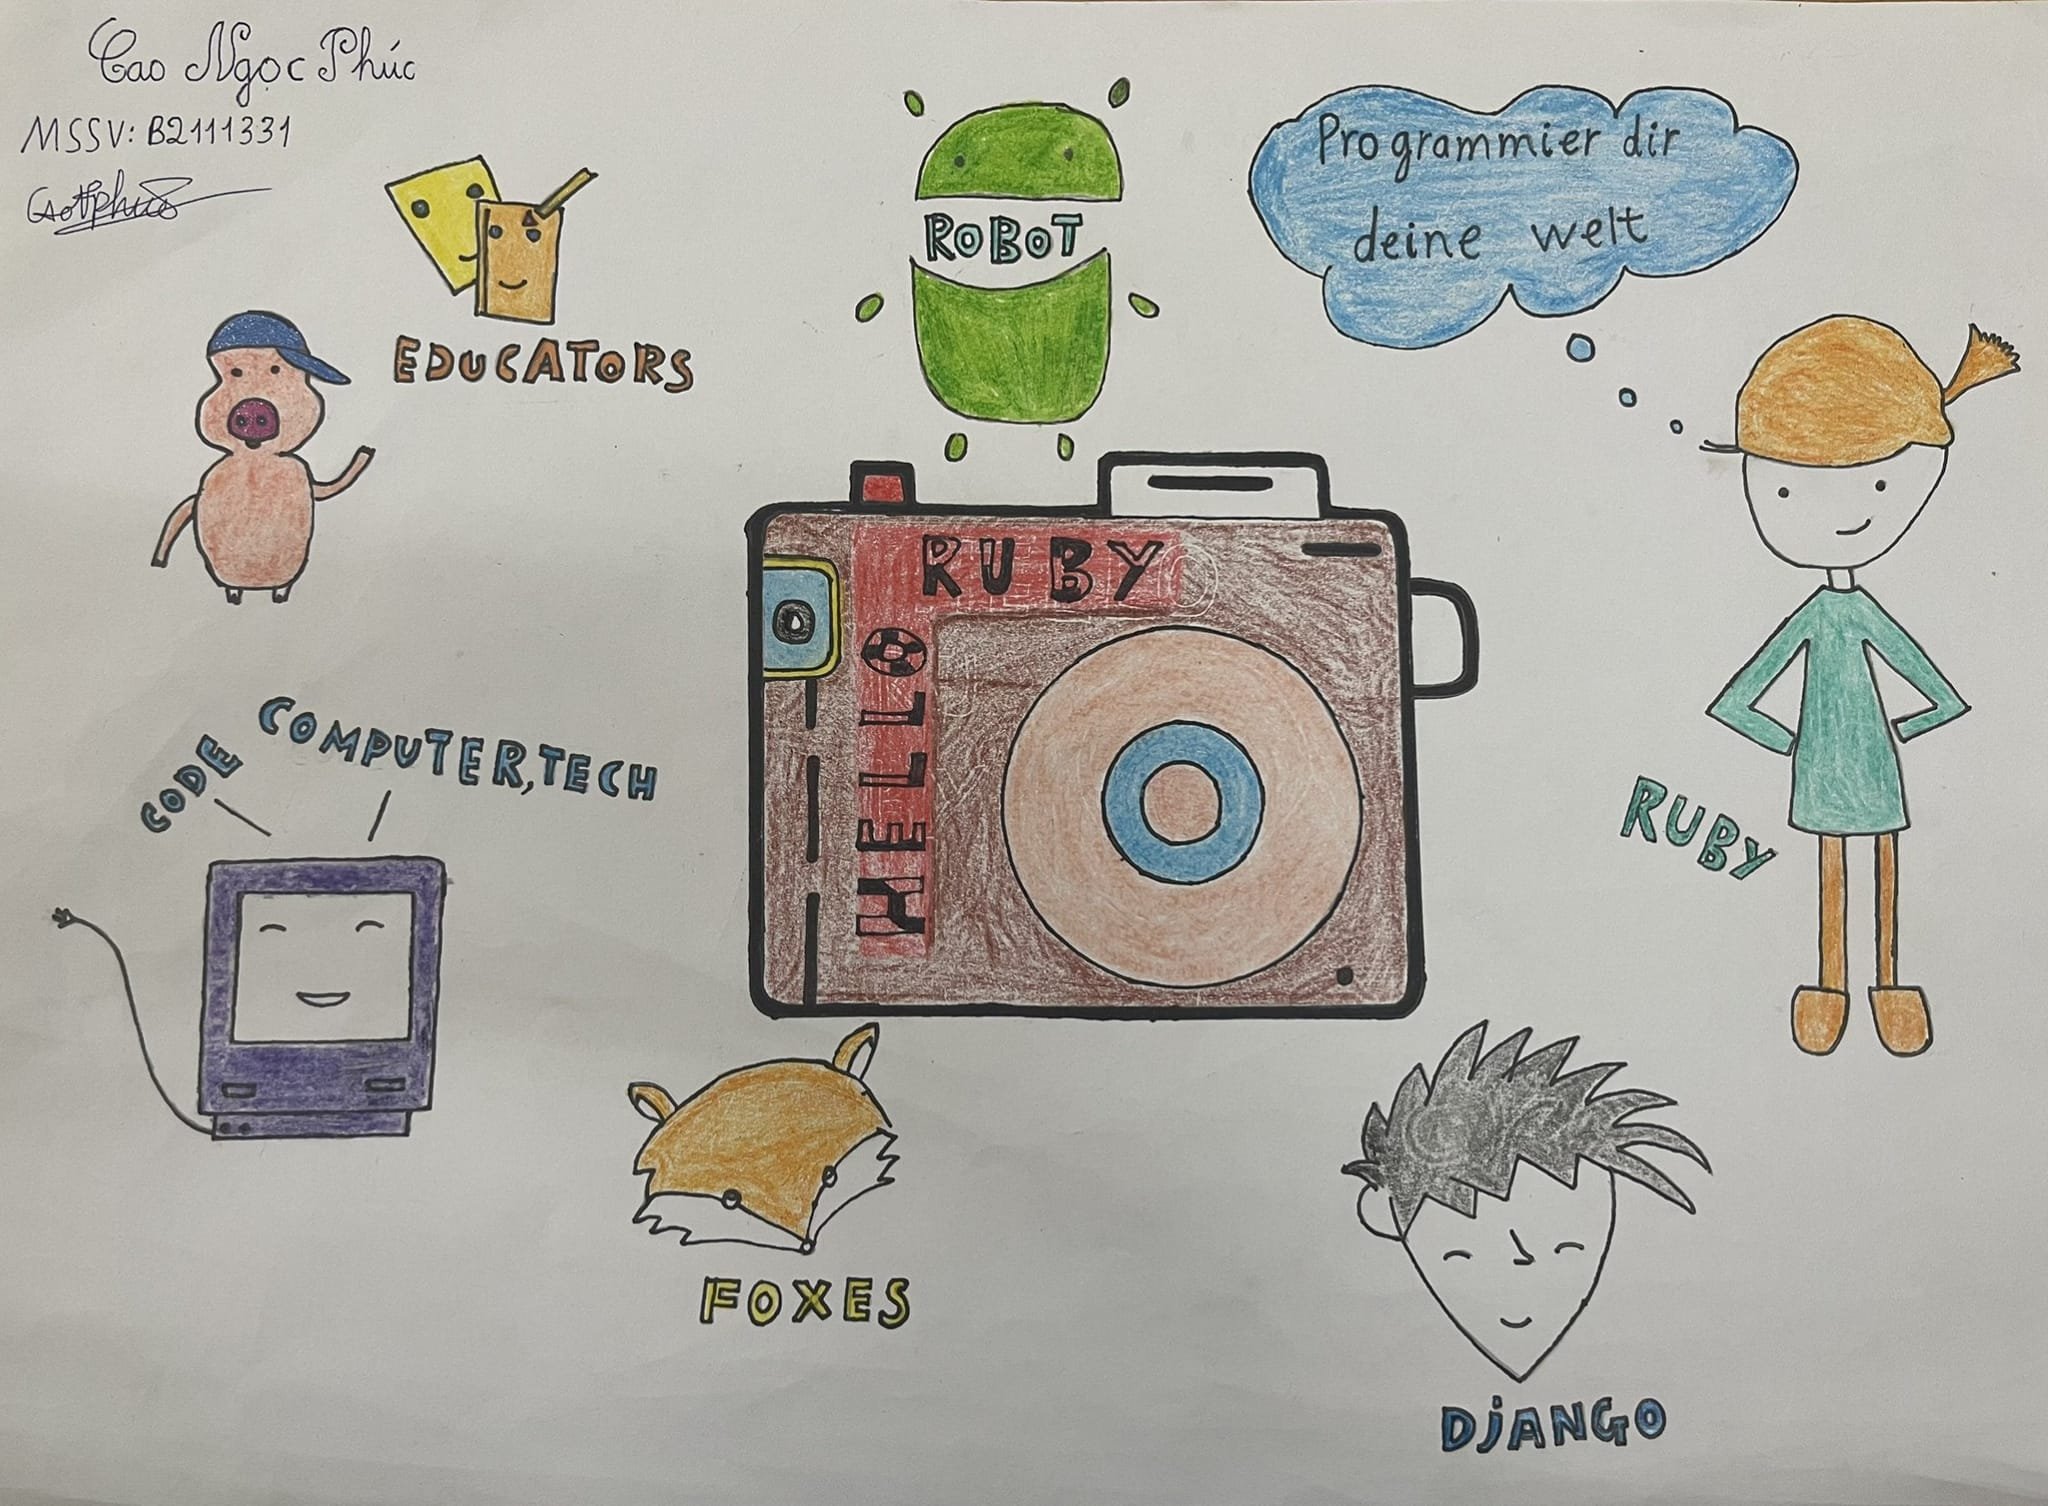 Cao Ngọc Phúc
MSSV: B2111331
EDUCATORS
ROBOT
Programmier dir
deine welt
RUBY
HELLO
CODE
COMPUTER,TECH
RUBY
FOXES
DjANGO